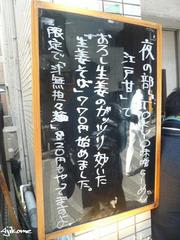 夜の部
江戸甘」で
おろし生姜のガッツリ効いた
「生姜そば」770円始めました。
限定で「汁無担々麺」830円もやってます